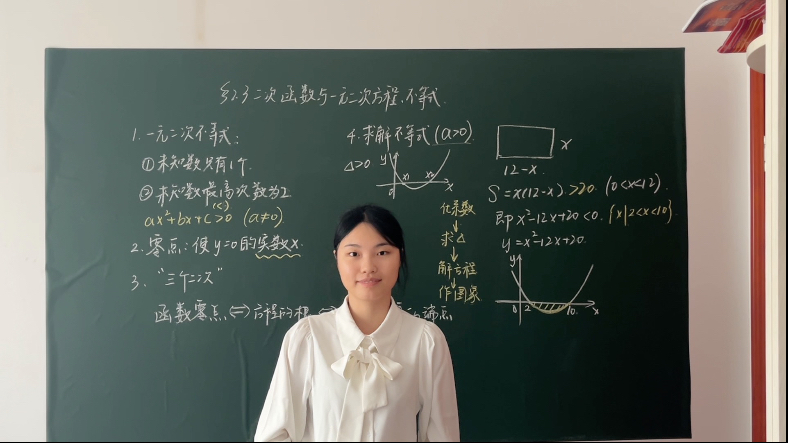 §2.3 二次函数与一元二次方程、不等式
1. 一元二次不等式:
①未知数只有1个.
②未知数最高次数为2
(<)
ax²+bx+c>0 (a≠0)
2. 零点: 使y=0的实数x.
3. “三个二次”
函数零点⇔方程的根⇔
端点
4. 求解不等式(a>0)
Δ>0
y
x₁
x₂
x
化系数
↓
求Δ
↓
解方程
↓
作图象
x
12-x.
S=x(12-x)>20. (0<x<12).
即x²-12x+20<0. {x|2<x<10}.
y=x²-12x+20.
y
0 2 10. x